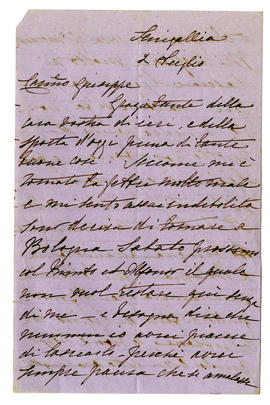 Senigallia
2 Luglio
Carino Giuseppe
Grazie tante della
cara vostra di ieri, e della
sporta d'oggi piena di tante
buone cose. Siccome mi è
tornata la febbre molto male
e mi sento assai indebolita
son decisa di tornare a
Bologna Sabato prossimo
col il quale
non vuol restare qui senza
di me - e bisogna dire che
nemmeno io avrei piacere
di lasciarlo - perchè avrei
sempre paura che si amalasse